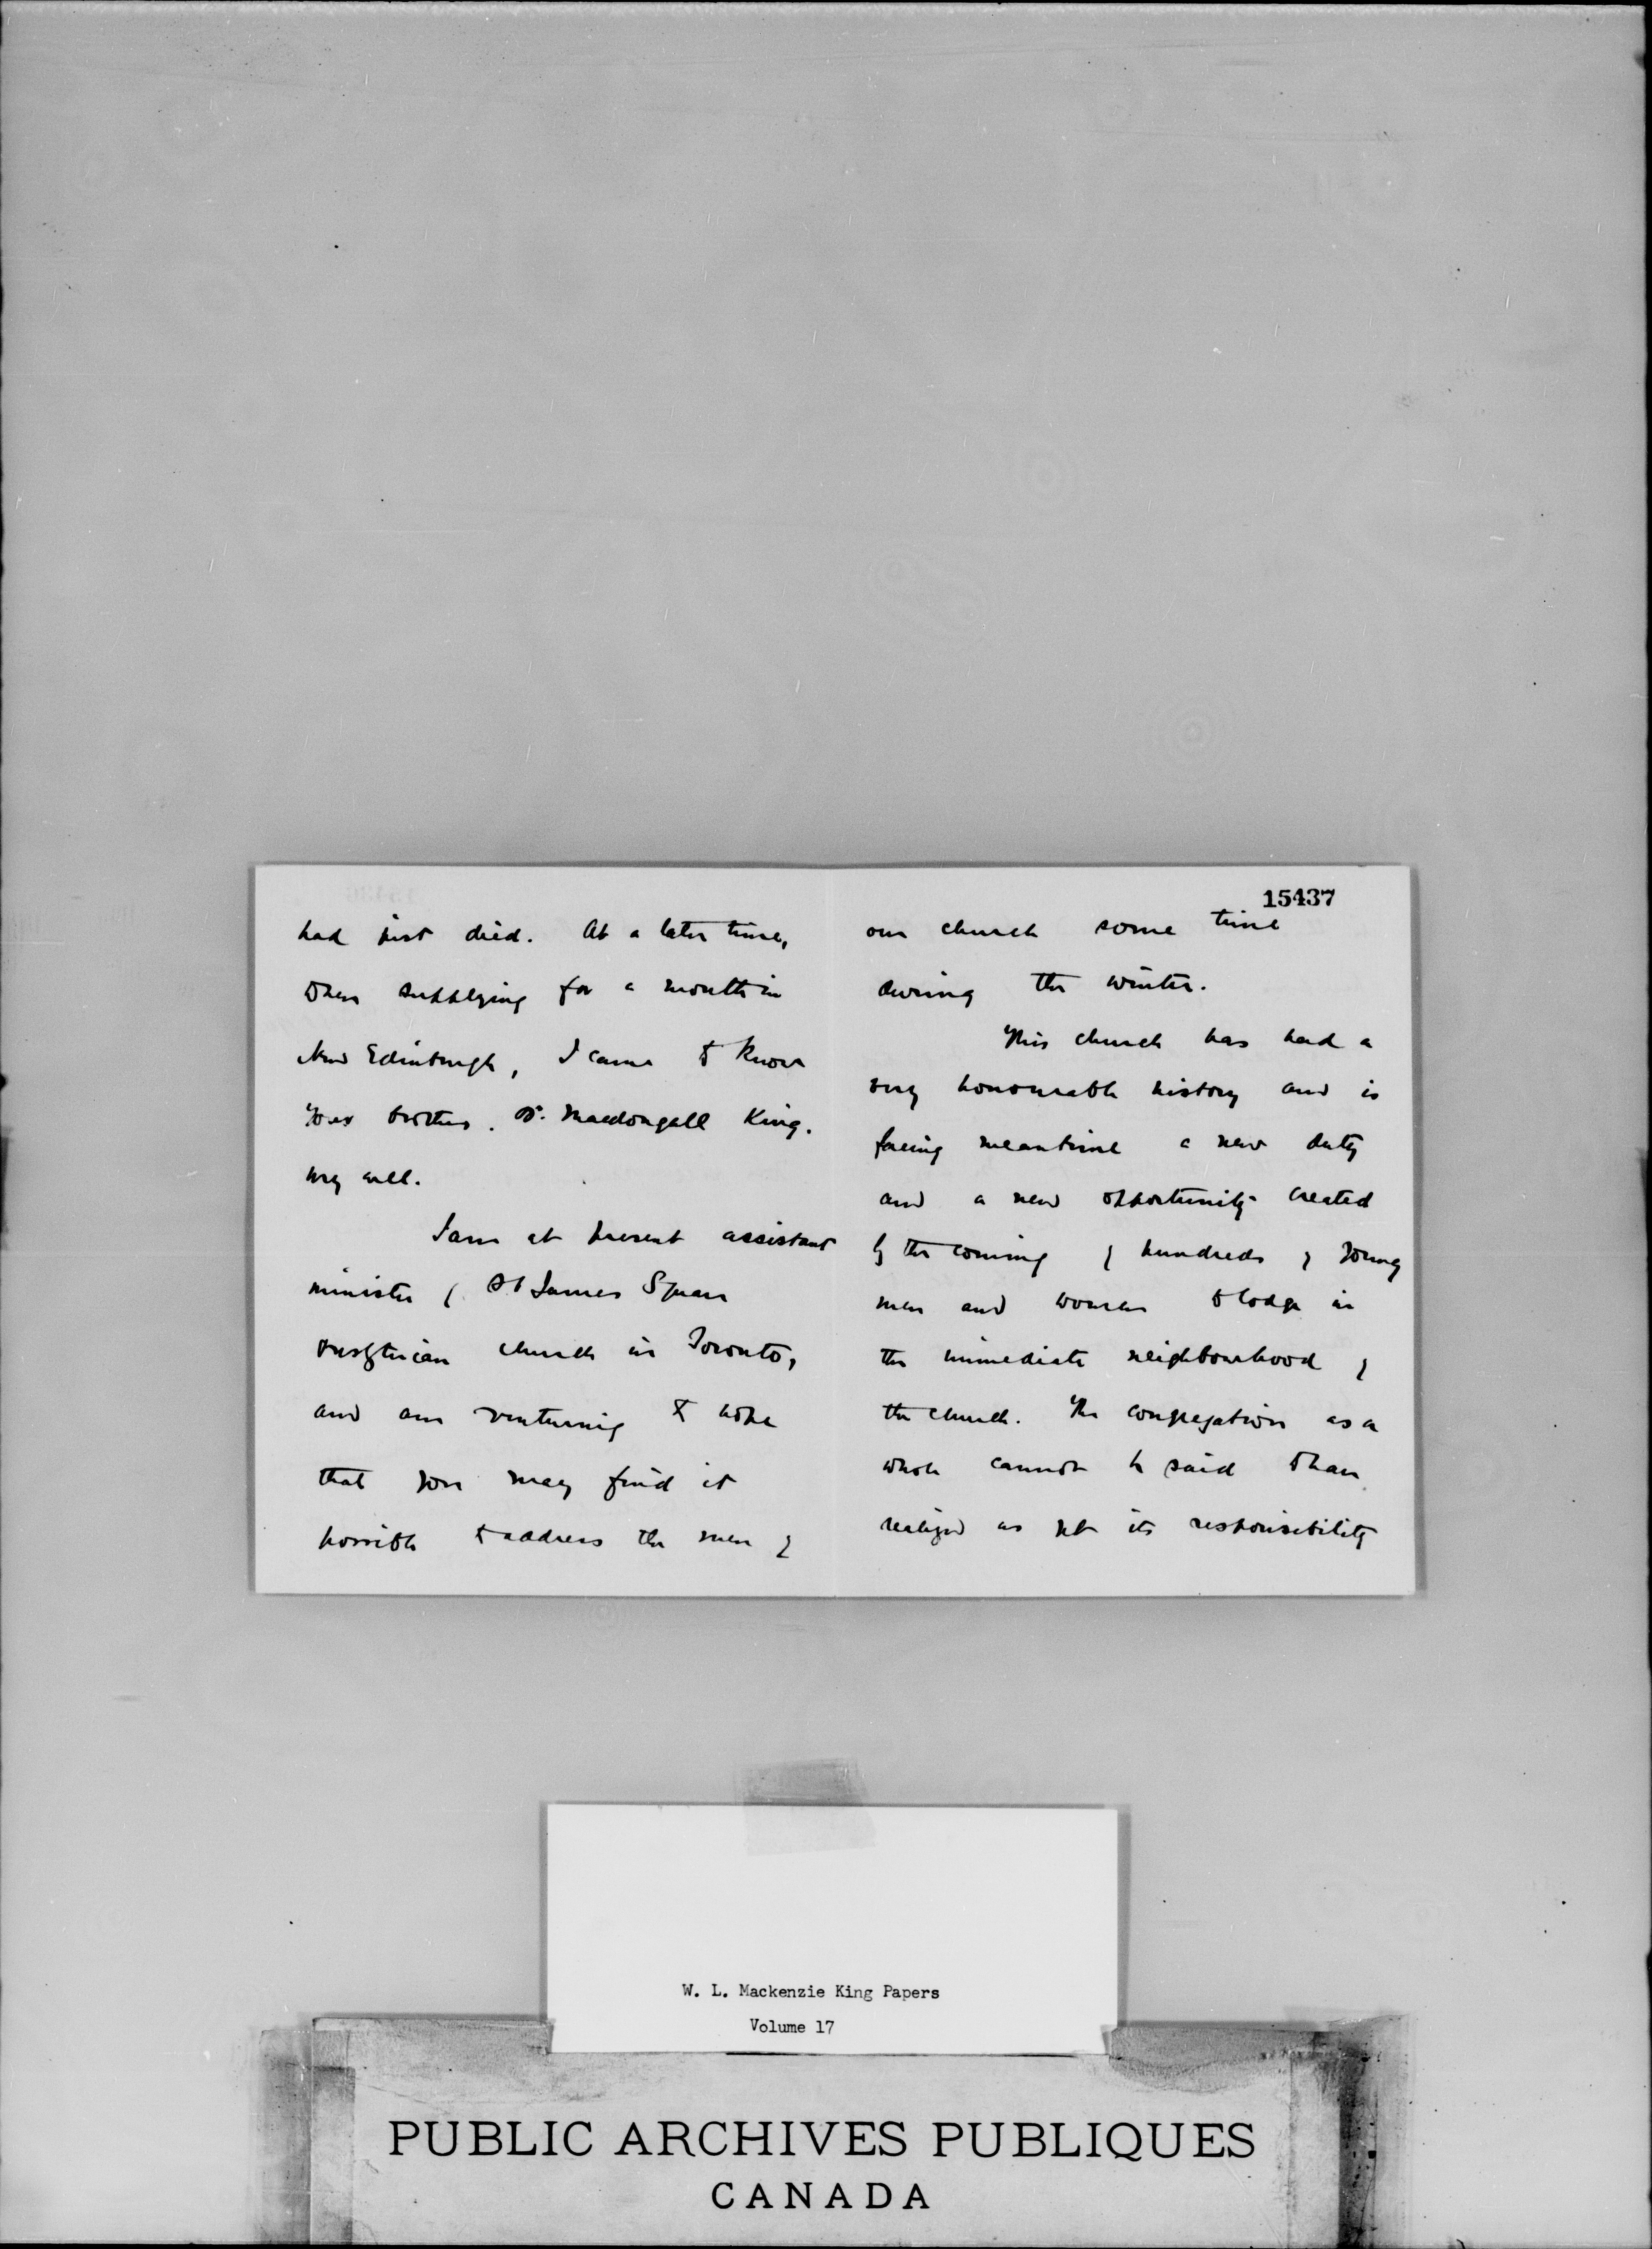 had just died. At a later time,
when supplying for a month in
New Edinburgh, I came to know
your brother. Dr. Macdougall King.
very well.
I am at present assistant
minister of St James Square
Presbyterian church in Toronto,
and am venturing to hope
that you may find it
possible to address the men of
15437
our church some time
during the winter.
This church has had a
very honourable history and is
facing meantime a new duty
and a new opportunity created
by the coming of hundreds of young
men and women to lodge in
the immediate neighbourhood of
the church. The congregation as a
whole cannot be said to have
realized as yet its responsibility
W. L. Mackenzie King Papers
Volume 17
PUBLIC ARCHIVES PUBLIQUES
CANADA